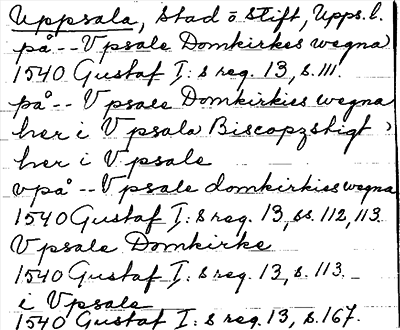 Uppsala, Stad o stift, Upps. l.
på -- Vpsale Domkirkes wegna
1540 Gustaf I:s reg. 13, s. 111.
på -- Vpsale Domkirkiss wegna
her i Vpsala Biscopzstigt
her i Vpsale
vpå -- Vpsale domkirkiss wegna
1540 Gustaf I:s reg. 13, ss. 112, 113
Vpsale Domkirke
1540 Gustaf I:s reg. 13, s. 113
i Vpsale
1540 Gustaf I:s reg. 13, s. 167.